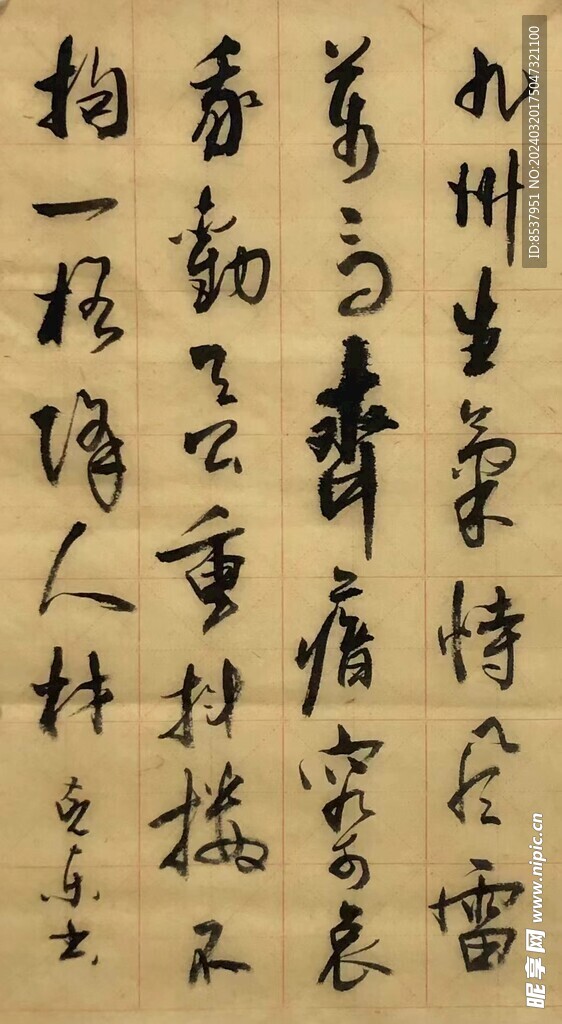 九州生氣恃風雷
萬馬齊瘖究可哀
我勸天公重抖擻不
拘一格降人材
克东书
ID:8537951 NO:20240320175047321100
昵享网 www.nipic.cn